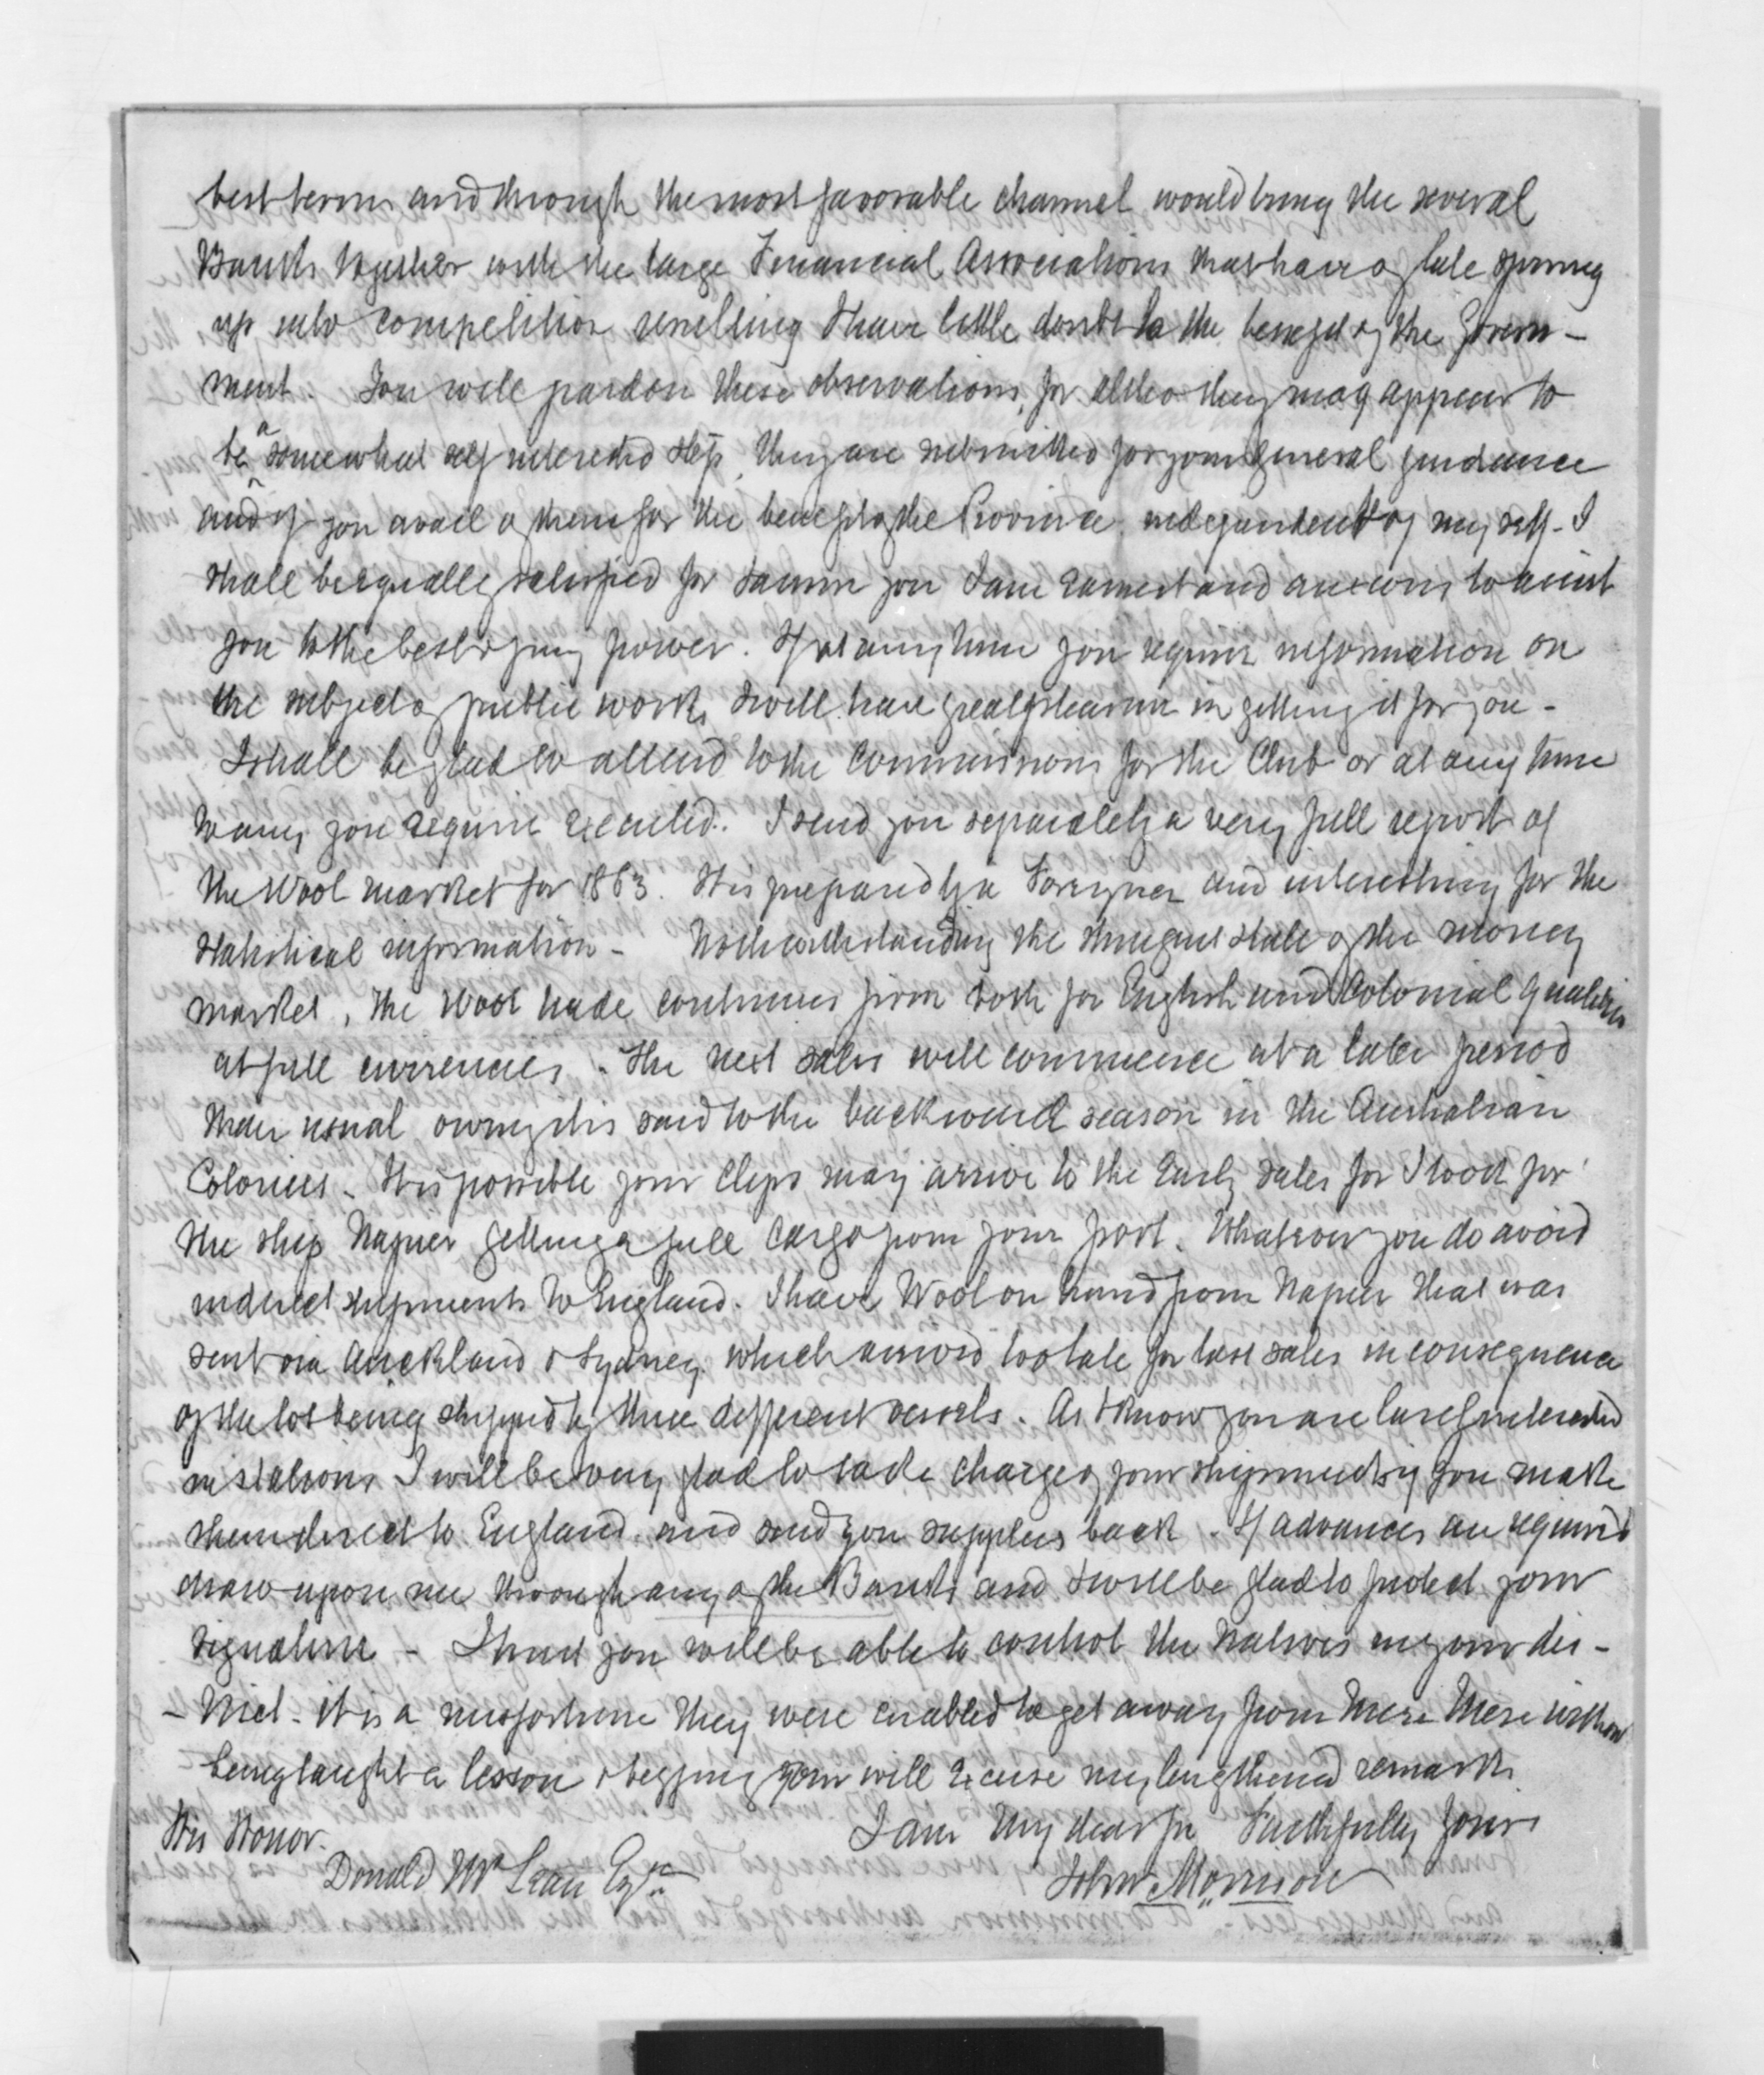 best terms and through the most favorable channel would bring the several
Banks together with the large Financial Associations that have of late sprung
up into competition resulting I have little doubt to the benefit of the Govern-
ment. You will pardon these observations, for altho they may appear to
be a somewhat self interested step, they are submitted for your general guidance
and if you avail of them for the benefit of the Province independent of myself - I
shall be equally satisfied for I assure you I am earnest and anxious to assist
you to the best of my power. If at any time you require information on
the subject of public works I will have great pleasure in getting it for you -
I shall be glad to attend to the Commissions for the Club or at any time
to any you require executed. I send you separately a very full report of
the Wool market for 1863. It is prepared by a Foreigner and interesting for the
statistical information - Notwithstanding the stringent state of the money
market, the Wool trade continues firm both for English and Colonial qualities
at full currencies. The next sales will commence at a later period
than usual owing it is said to the backward season in the Australian
Colonies - It is possible your clips may arrive to the Early sales for I look for
the ship Napier getting a full cargo from your port. Whatever you do avoid
indirect shipments to England. I have Wool on hand from Napier that was
sent via Auckland & Sydney which arrived too late for last sales in consequence
of the lot being shipped by three different vessels. As I know you are largely interested
in stations I will be very glad to take charge of your shipments if you make
them direct to England and send you supplies back. If advances are required
draw upon me through any of the Banks and I will be glad to protect your
signature - I trust you will be able to control the Natives in your dis-
- trict - it is a misfortune they were enabled to get away from Mere Mere without
being taught a lesson & begging you will excuse my lengthened remarks
I am My dear Sir Faithfully yours
John Morrison
His Honor.
Donald McLean Esqre